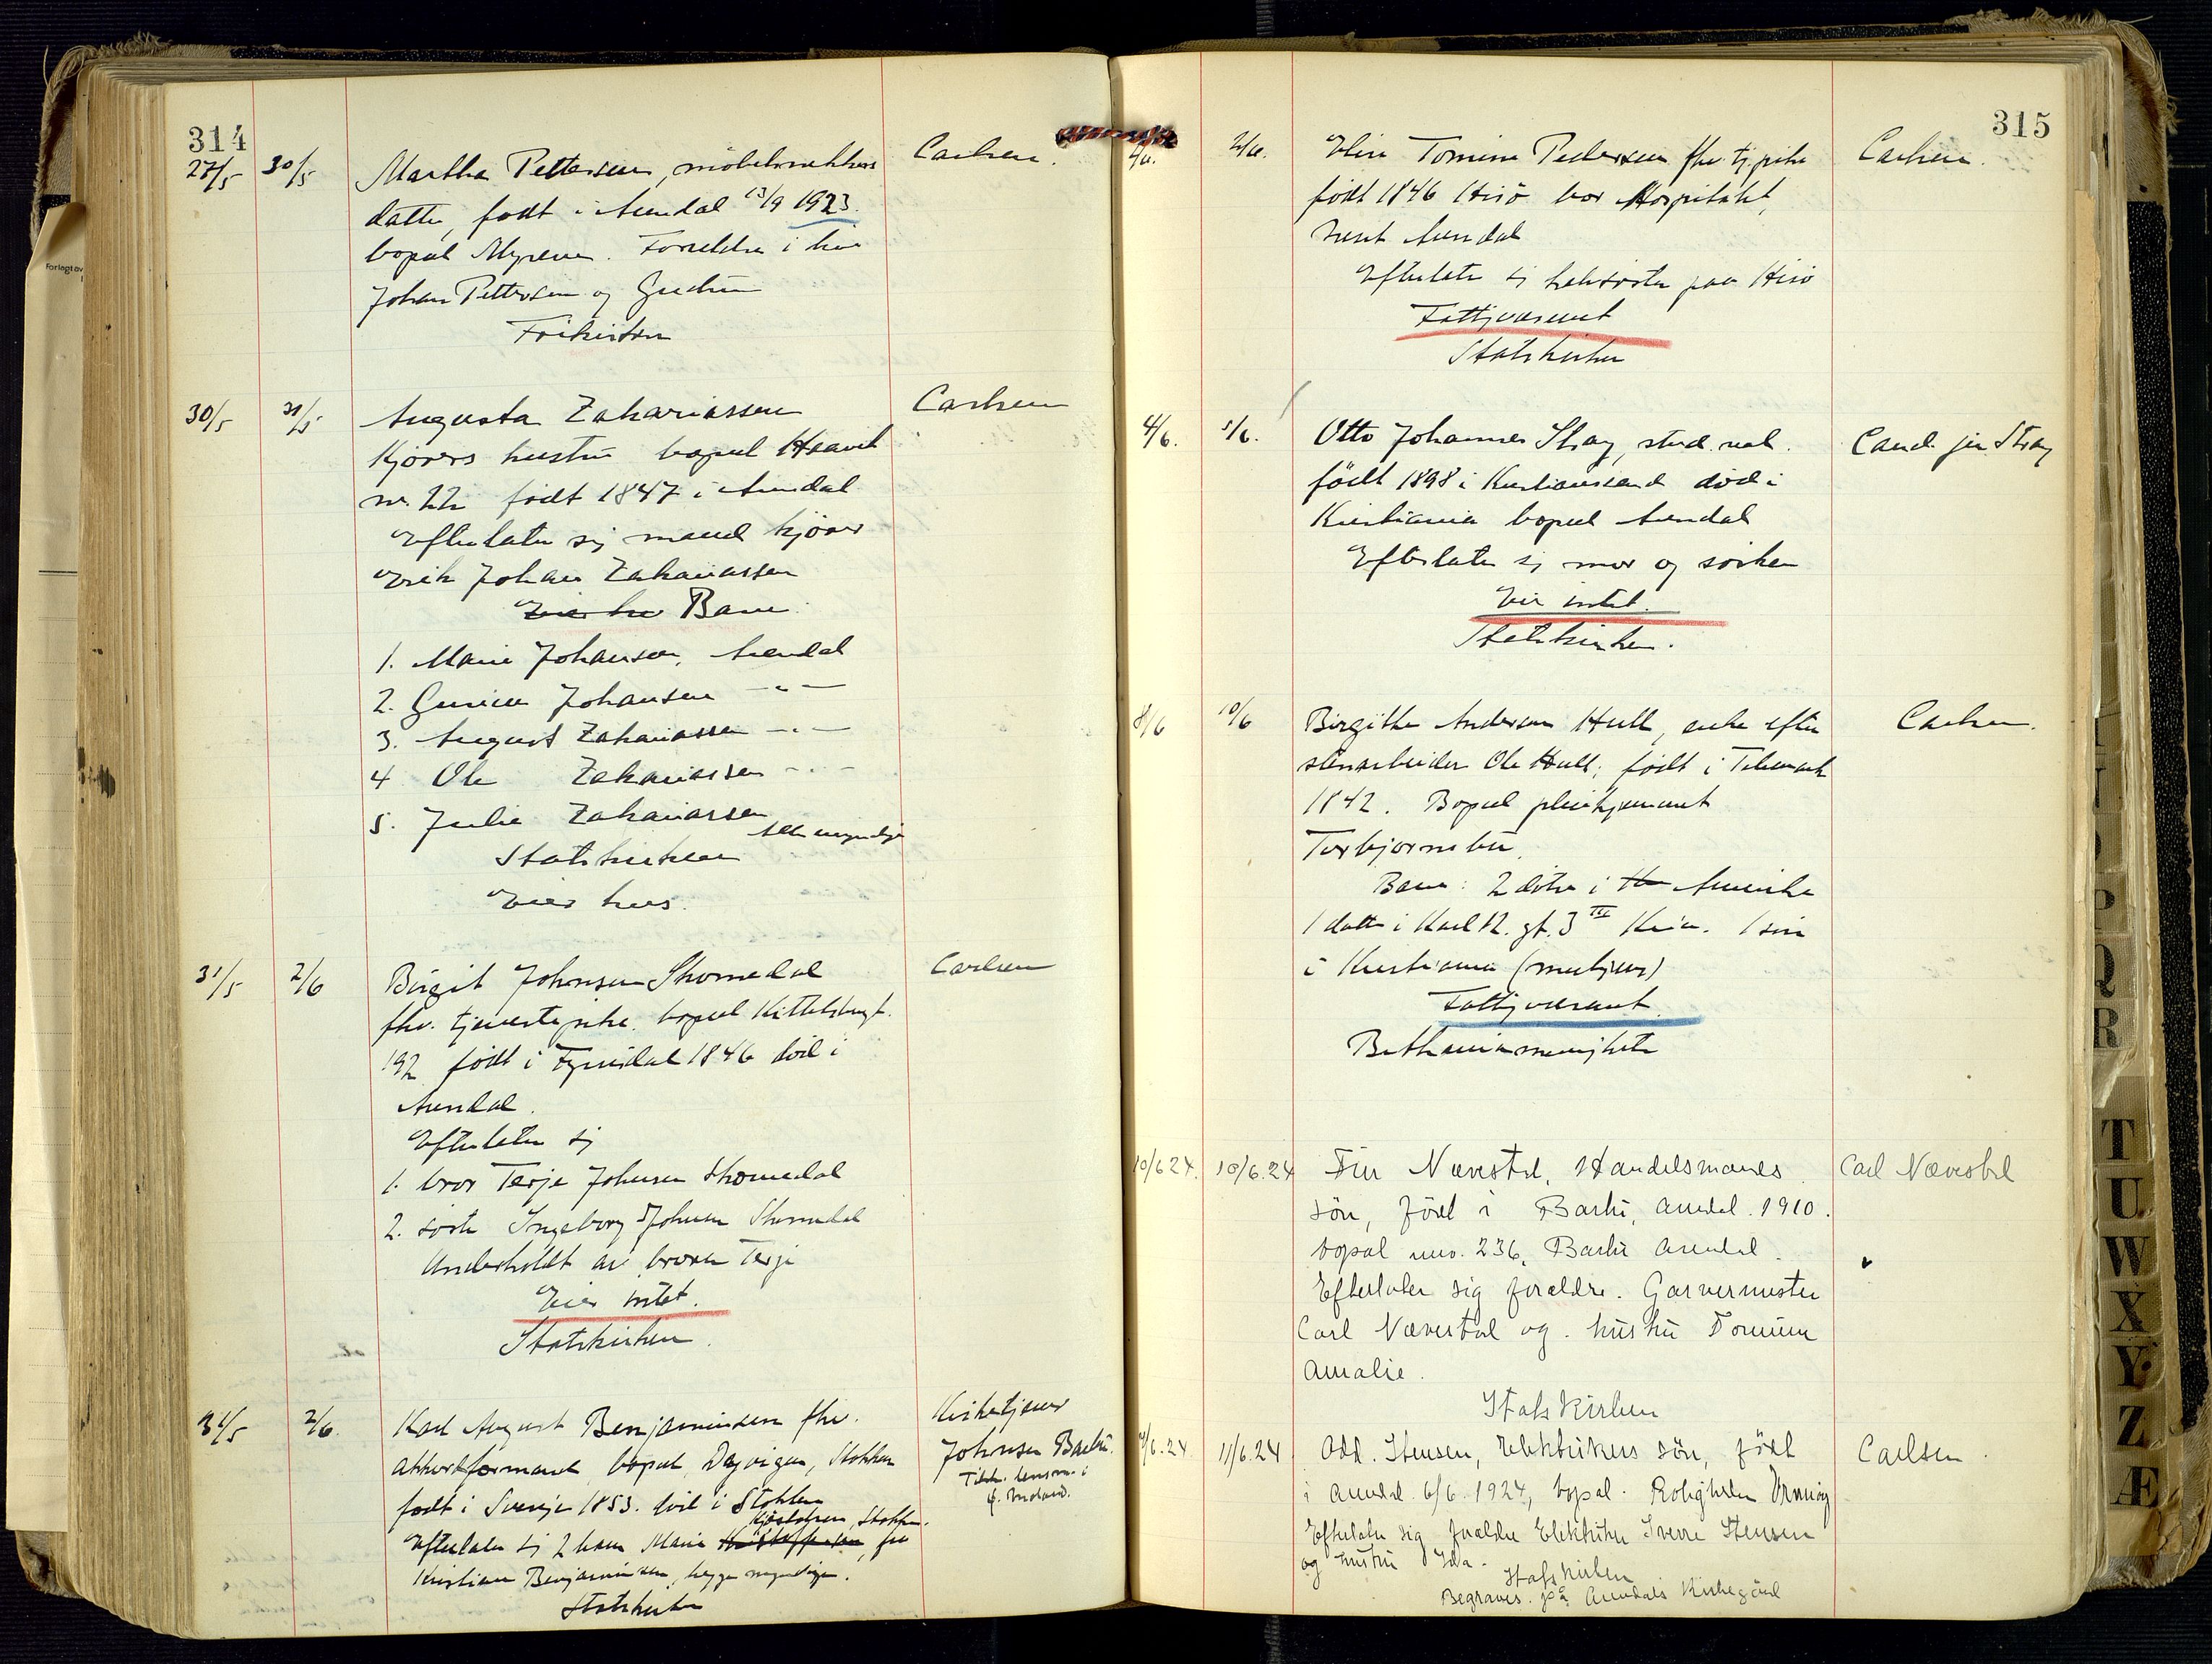 314
27/5 30/5 Martha Pettersen, møbelsnekkers Carlsen.
datter, født i Arendal 13/9 1923.
bopæl Myrene. Forældre i live
Johan Pettersen og Gudrun
Frikirken
30/5 31/5 Augusta Zakariassen Carlsen
Kjørers hustru bopæl
nr. 22 født 1847 i Arendal
Efterlater sig mand kjører
Erik Johan Zakariassen
Barn
1. Marie Johansen, Arendal
2. Johansen –"–
3. August Zakariassen –"–
4 Ole Zakariassen –"–
5. Julie Zakariassen
alle myndige
Statskirken
Eier hus.
31/5 2/6 Birgit Johnsen Skomedal Carlsen
fhv. tjenestepike, bopæl Kittelsbugt.
192 født i Fyrisdal 1846 død i
Arendal.
Efterlater sig
1. bror Terje Johnsen Skomedal
2. søster Ingeborg Johnsen Skomedal
Underholdt av broren Terje
Eier intet.
Statskirken.
31/5 2/6. Karl August Benjaminsen fhv. Kirketjener
akkordformand, bopæl Dejvigen, Stokken Johnsen Barbu.
født i Sverige 1853. død i Stokken Tilh. lensm. i
Stokken. Ø. Moland.
Efterlater sig 2 barn Marie Kristoffersen, fru
Kristian Benjaminsen, begge myndige.
Statskirken
315
2/6. Elin Tomine Pedersen fhv. tj.pike Carlsen.
født 1846 Hisø bor Hospitalet,
Arendal
Efterlater sig halvsøster paa Hisø
Fattigvæsenet
Statskirken
4/6. 5/6. Otto Johannes Stray, stud. real. Cand. jur. Stray
født 1898 i Kristianssand død i
Kristiania bopæl Arendal
Efterlater sig mor og søsken
Eier intet.
Statskirken.
8/6 10/6 Birgithe Andersen Hull, enke efter Carlsen.
stenarbeider Ole Hull; født i Telemark
1842. Bopæl pleiehjemmet
Torbjørnsbu.
Barn: 2 døtre i Amerika
1 datter i Karl 12. gt. 3 III Kr.ia. 1 søn
i Kristiania
Fattigvæsenet.
Bethaniamenigheten
10/6.24. 10/6.24 Finn Nævestad, Handelsmands Carl Nævestad
søn, född i Barbu, Arendal. 1910.
bopæl nuv. 236, Barbu Arendal.
Efterlater sig forældre. Garvermester
Carl Nævestad og. hustru Tomine
Amalie.
Statskirken
9/6.24. 11/6.24 Odd. Stensen, Elektrikers søn, född Carlsen.
i Arendal 6/6. 1924, bopæl. Roligheden
Efterlater sig forældre Elektriker Sverre Stensen
og hustru Ida.
Statskirken
Begraves. på Arendals Kirkegård
Forlagt av
P
Q
R
T
U
W
X
Y
Z
Æ